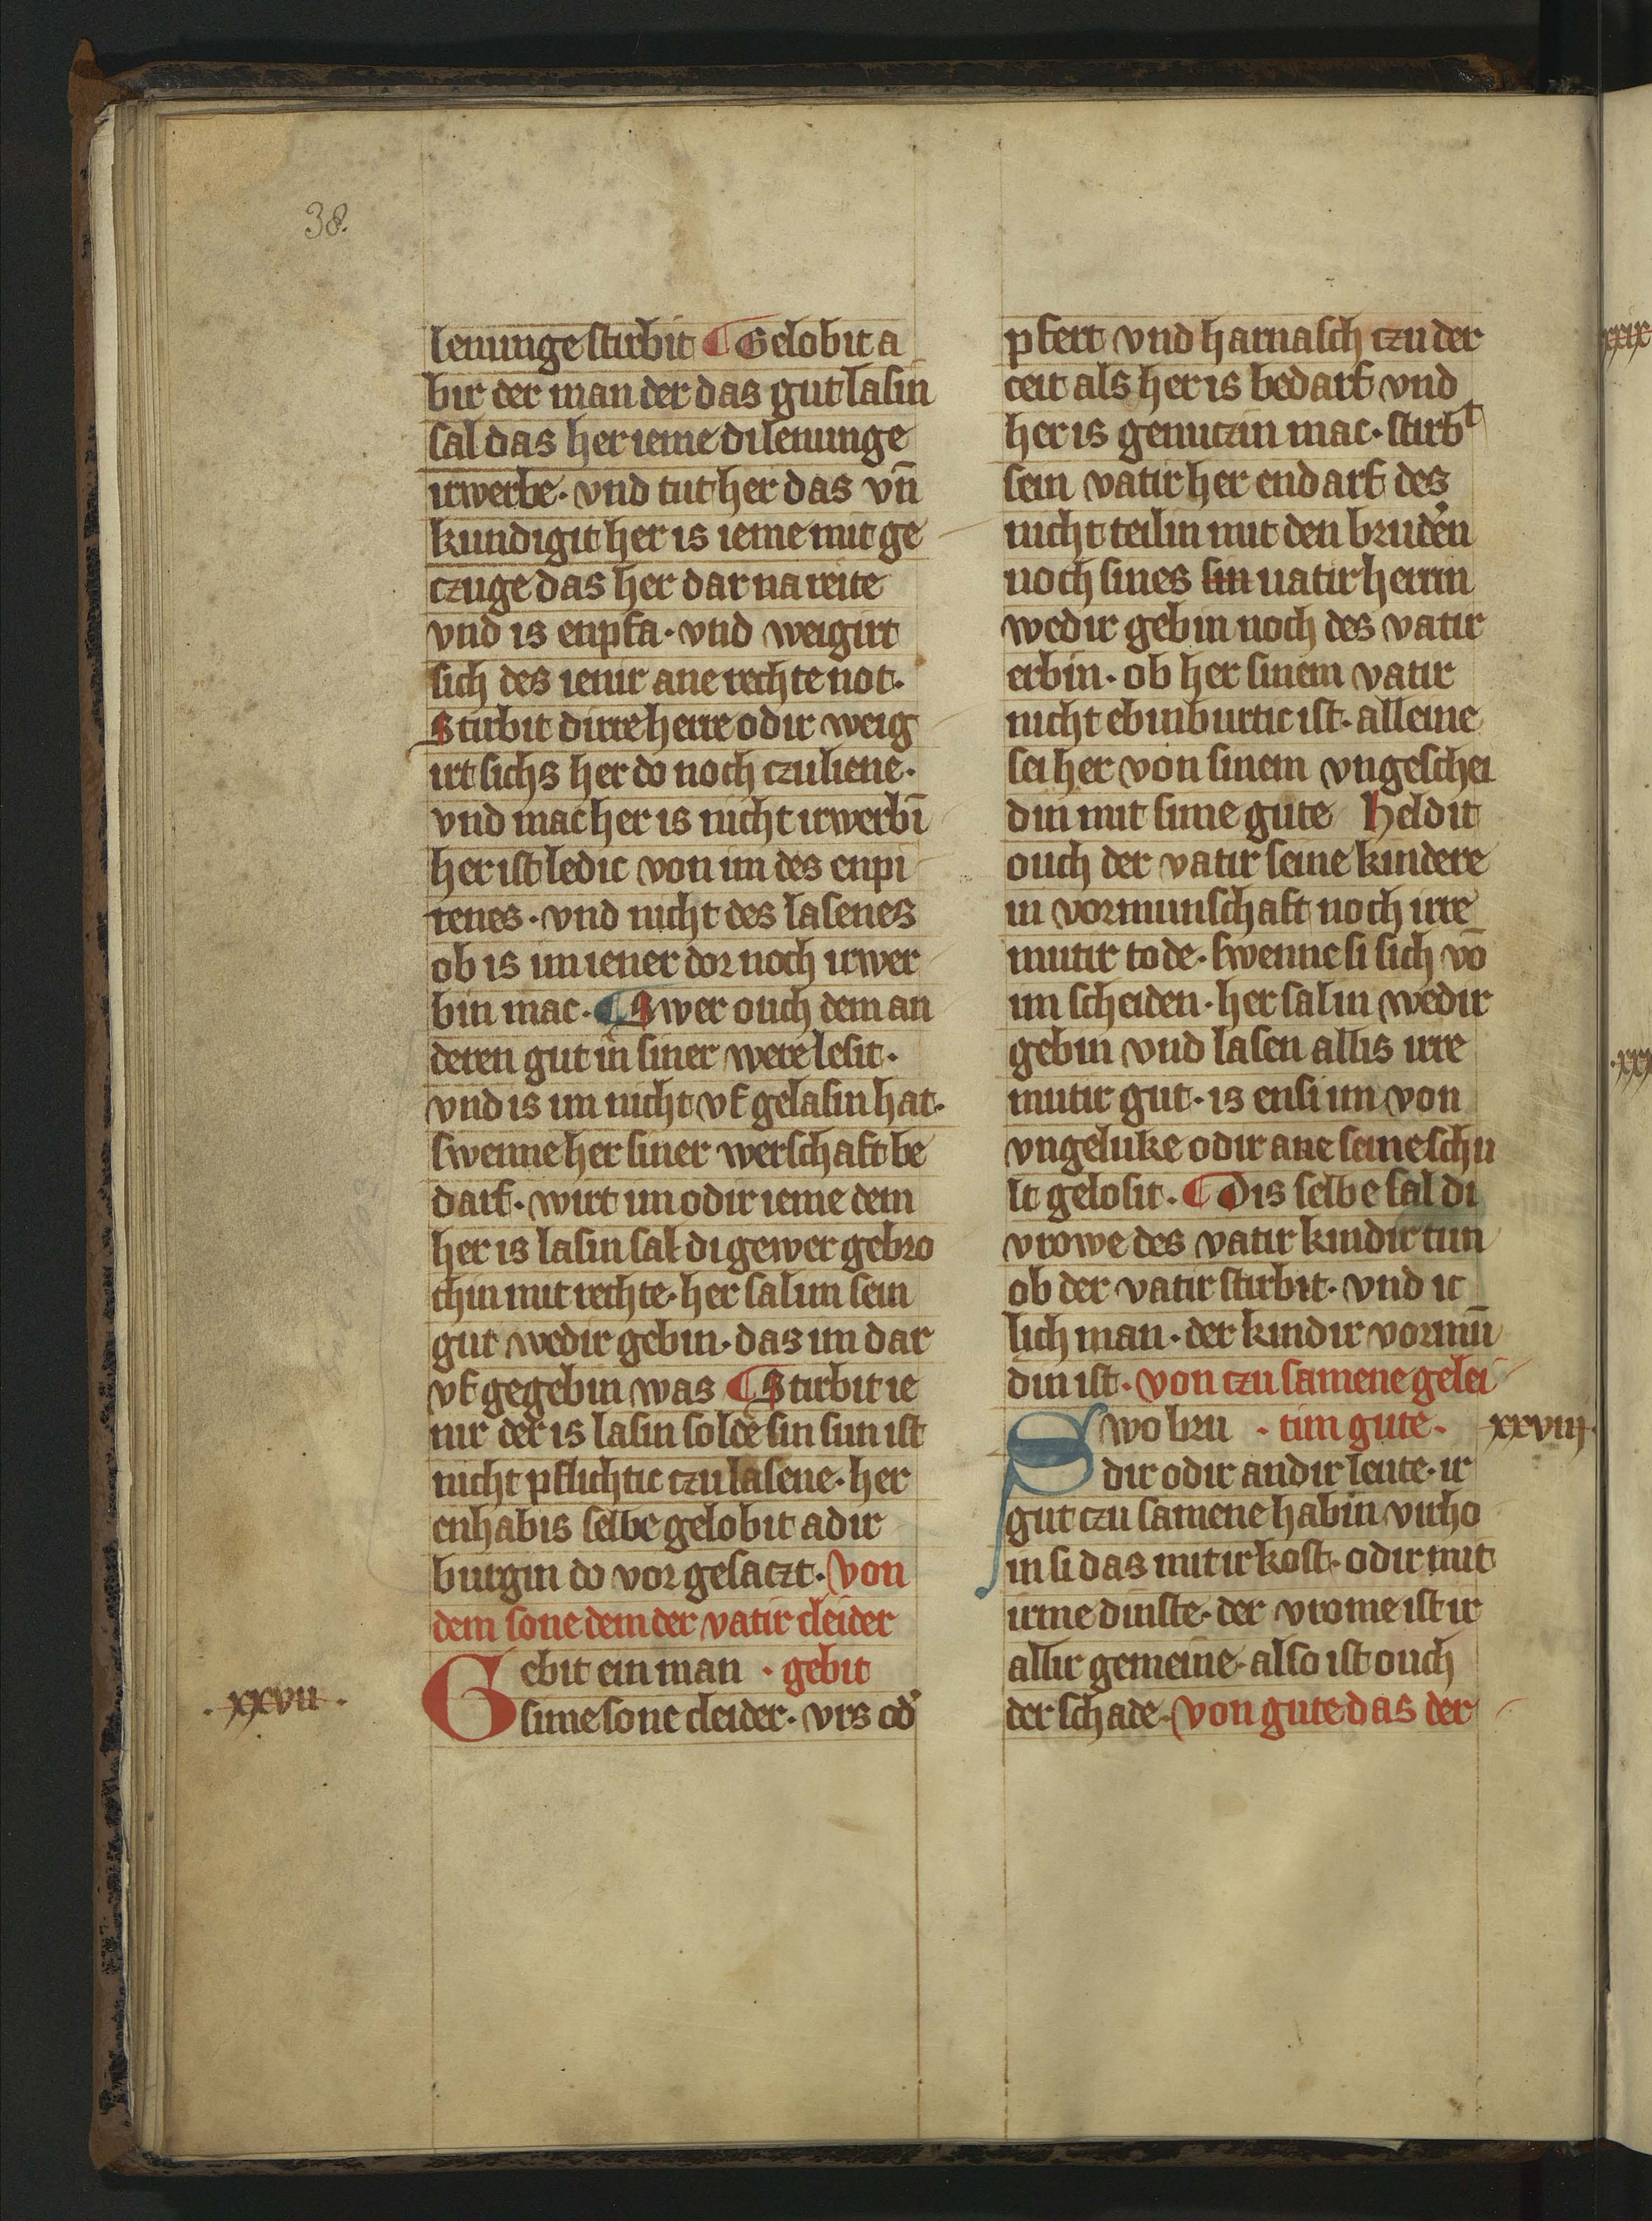 38.
lenunge stirbit ¶ Gelobit a
bir der man der das gut lasin
sal das her ieme di lenunge
irwerbe · vnd tut her das vn̄
kundigit her is ieme mit ge
czuge das her dar na reite
vnd is enpfa · vnd weigirt
sich des ienir ane rechte not ·
Stirbit dirre herre odir weig
irt sichs her do noch czu liene ·
vnd mac her is nicht irwerbī
her ist ledic von im des enpi
renes · vnd nicht des lasenes
ob is im iener dor noch irwer
bin mac · ¶ Swer ouch dem an
deren gut in siner were lesit ·
vnd is im nicht vf gelasin hat ·
swenne her siner werschaft be
darf · wirt im odir ieme dem
her is lasin sal di gewer gebro
chin mit rechte · her sal im sein
gut wedir gebin · das im dar
vf gegebin was ¶ Stirbit ie
nir der is lasin solde sin sun ist
nicht pflichtic czu lasene · her
enhabis selbe gelobit adir
burgin do vor gesaczt · Von
dem sone dem der vatir cleider
Gebit ein man · gebit
· xxvii ·
sime sone cleider · vrs od̕
pfert vnd harnasch czu der
ceit als her is bedarf vnd
her is genuczin mac · stirbᵗ
sein vatir her endarf des
nicht teilin mit den brud̕en
noch sines sin uatir herrin
wedir gebin noch des vatir
erbin · ob her sinem vatir
nicht ebinburtic ist · alleine
sei her von sinem vngeschei
din mit sime gute Heldit
ouch der vatir seine kindere
in vormunschaft noch irre
mutir tode · swenne si sich vō
im scheiden · her sal in wedir
gebin vnd lasen allis irre
mutir gut · is ensi im von
vngeluke odir ane seine schu
lt gelosit · ¶ Dis selbe sal di
vrowe des vatir kindir tun
ob der vatir stirbit · vnd ic
lich man · der kindir vormū
din ist · von czu samene gelei
Swo bru · tim gute · xxviij ·
dir odir andir leute · ir
gut czu samene habin virho
in si das mit ir kost · odir mit
irme dinste · der vrome ist ir
allir gemeine · also ist ouch
der schade · Von gute das der
xxix
· xxx